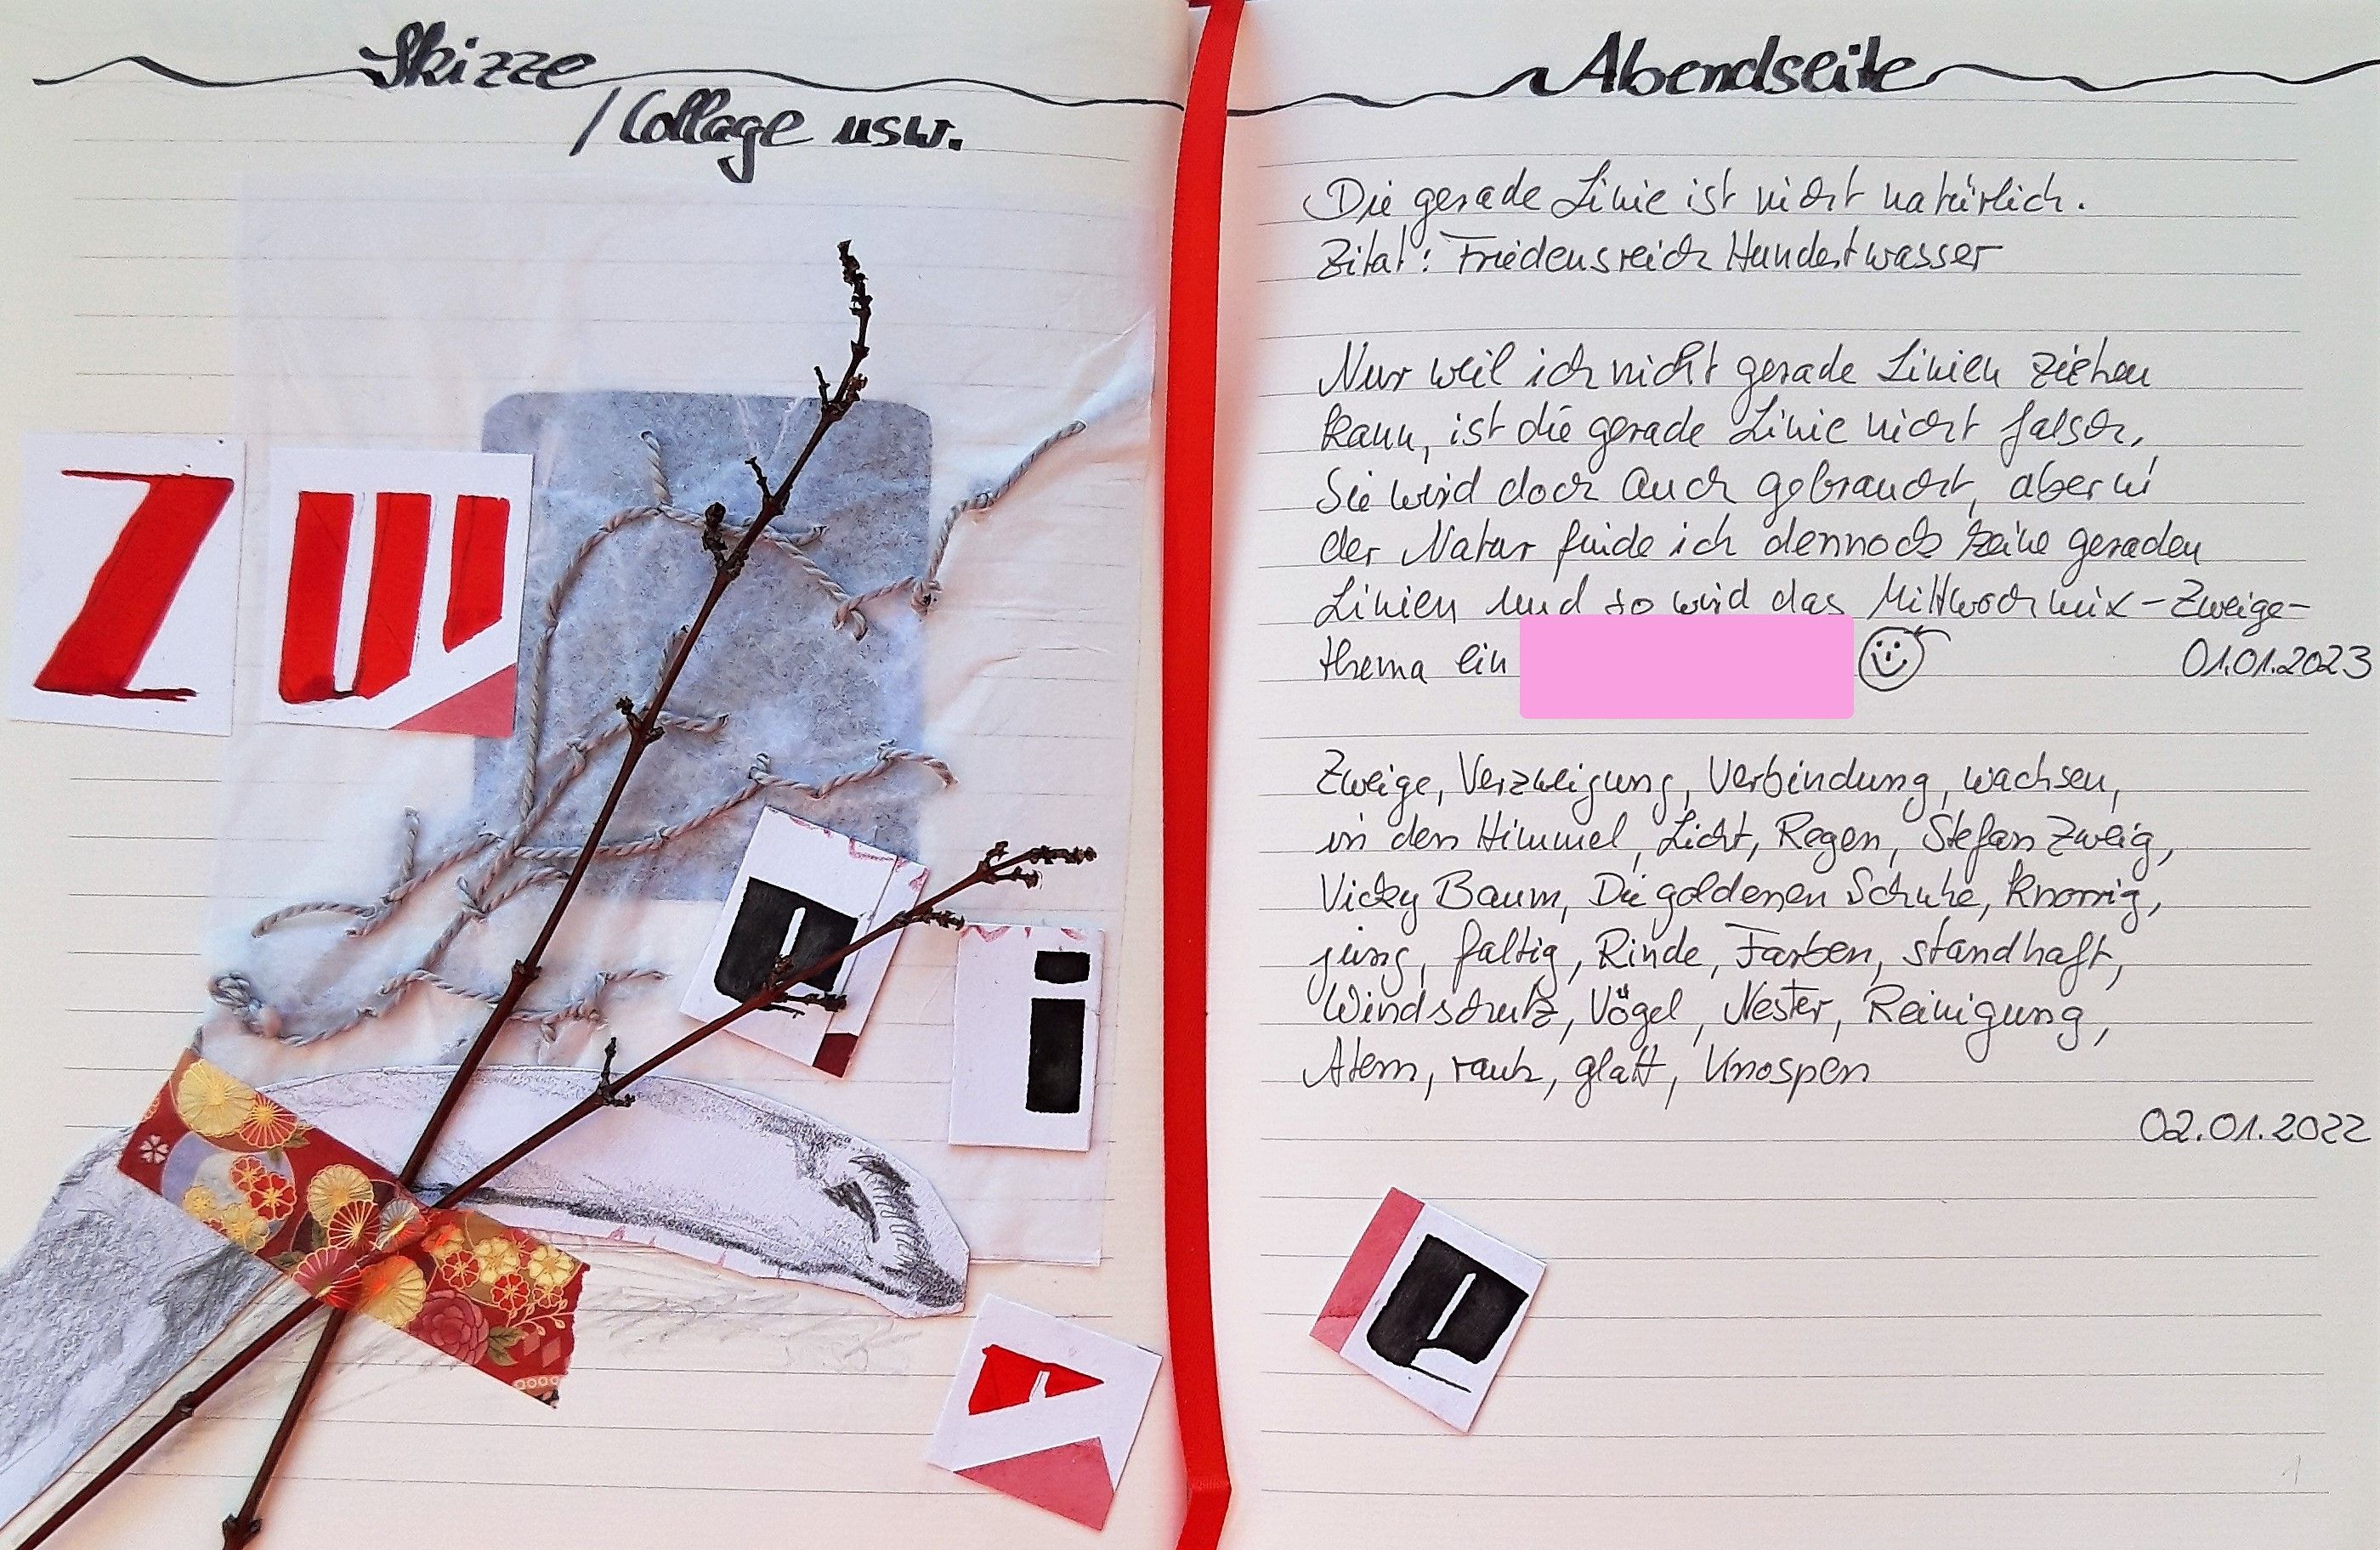 Skizze
/Collage usw.
Z
w
e
i
g
e
Abendseite
Die gerade Linie ist nicht natürlich.
Zitat: Friedensreich Hundertwasser
Nur weil ich nicht gerade Linien ziehen
kann, ist die gerade Linie nicht falsch,
Sie wird doch auch gebraucht, aber in
der Natur finde ich dennoch keine geraden
Linien und so wird das Mittwochmix-Zweige-
thema ein
01.01.2023
Zweige, Verzweigung, Verbindung, wachsen,
in den Himmel, Licht, Regen, Stefan Zweig,
Vicky Baum, Die goldenen Schuhe, knorrig,
jung, faltig, Rinde, Farben, standhaft,
Windschutz, Vögel, Nester, Reinigung,
Atem, rauh, glatt, Knospen
02.01.2022